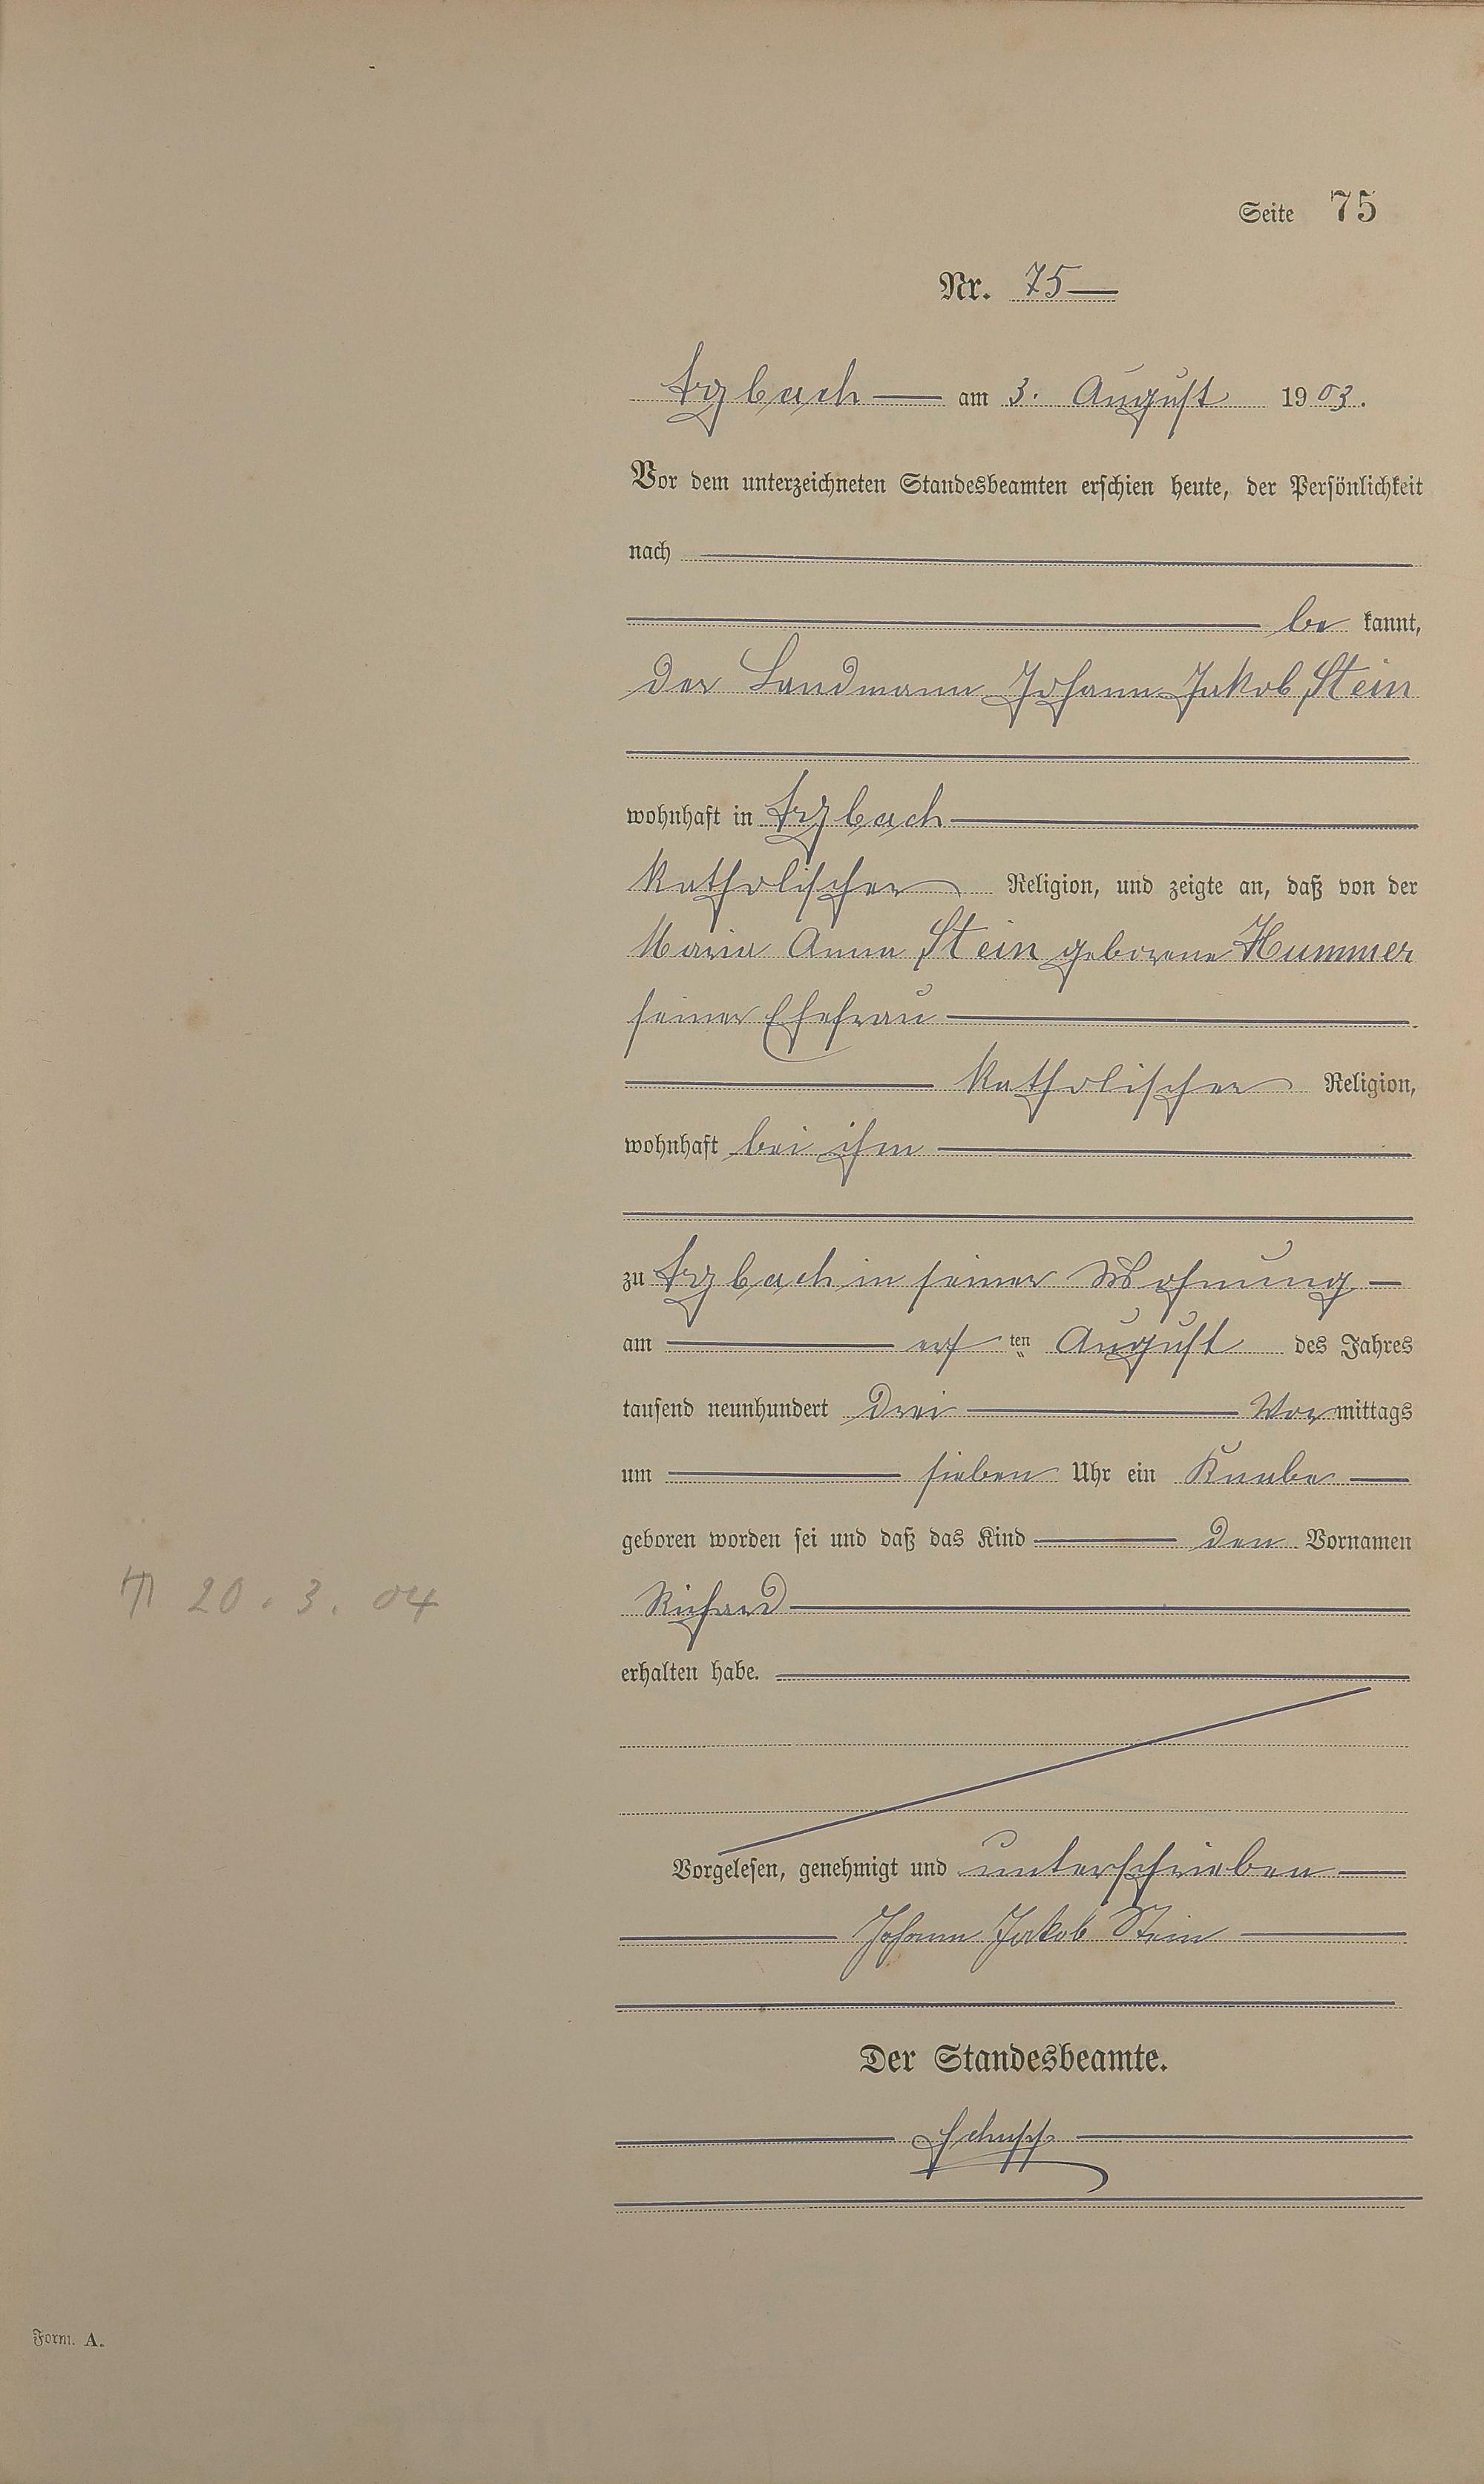 Seite 75
Nr. 75
Arzbach am 3. August 1903.
Vor dem unterzeichneten Standesbeamten erschien heute, der Persönlichkeit
nach
be kannt,
der Landmann Johann Jakob Stein
wohnhaft in Arzbach
katholischer Religion, und zeigte an, daß von der
Maria Anna Stein geborene Hummer
seiner Ehefrau
katholischer Religion,
wohnhaft bei ihm
zu Arzbach in seiner Wohnung
am ersten August des Jahres
tausend neunhundert drei Vormittags
um sieben Uhr ein Knabe
geboren worden sei und daß das Kind den Vornamen
Richard
† 20. 3. 04
erhalten habe.
Vorgelesen, genehmigt und unterschrieben
Johann Jakob Stein
Der Standesbeamte.
Schupp
Form. A.